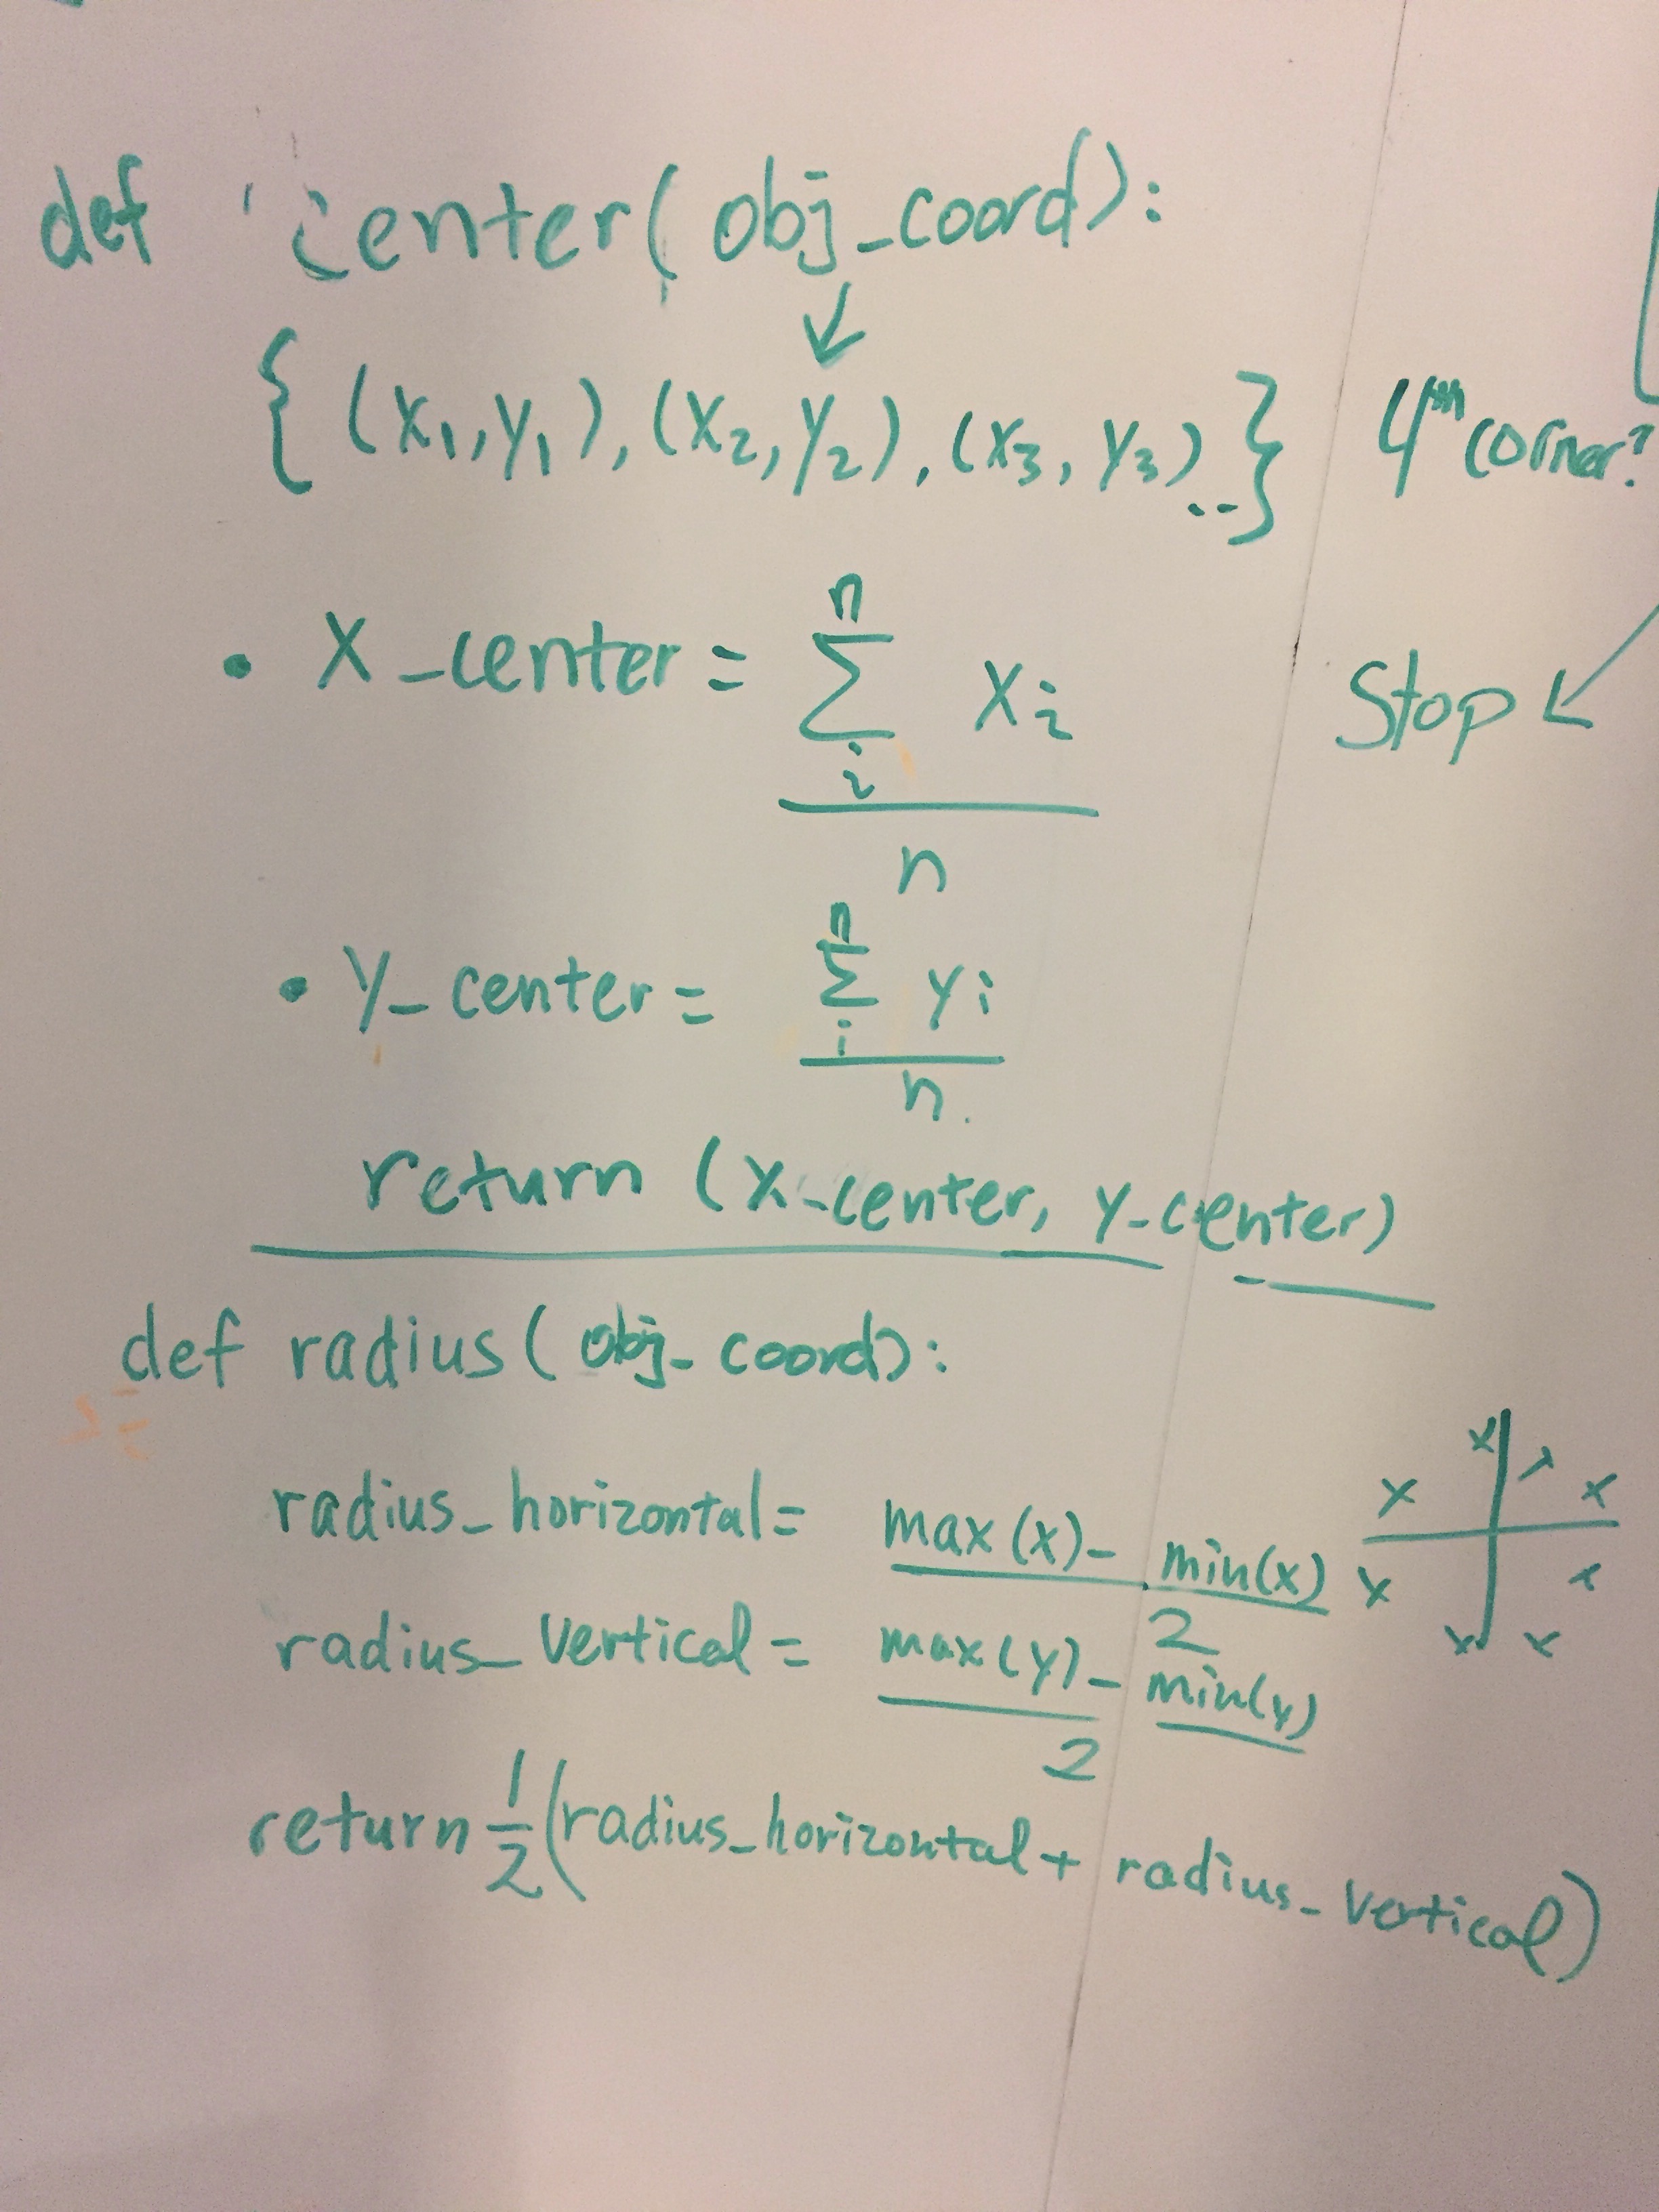 def center( obj_coord):
{ (x₁,y₁), (x₂,y₂), (x₃,y₃)..} 4th corner?
• X_center = Σ xᵢ
n
i
n
Stop
• Y_center = Σ yᵢ
n
i
n.
return (x_center, y_center)
def radius( obj_coord):
radius_horizontal = max(x) - min(x)
2
radius_vertical = max(y) - min(y)
2
x x x x
x x x x
return 1/2 (radius_horizontal + radius_vertical)